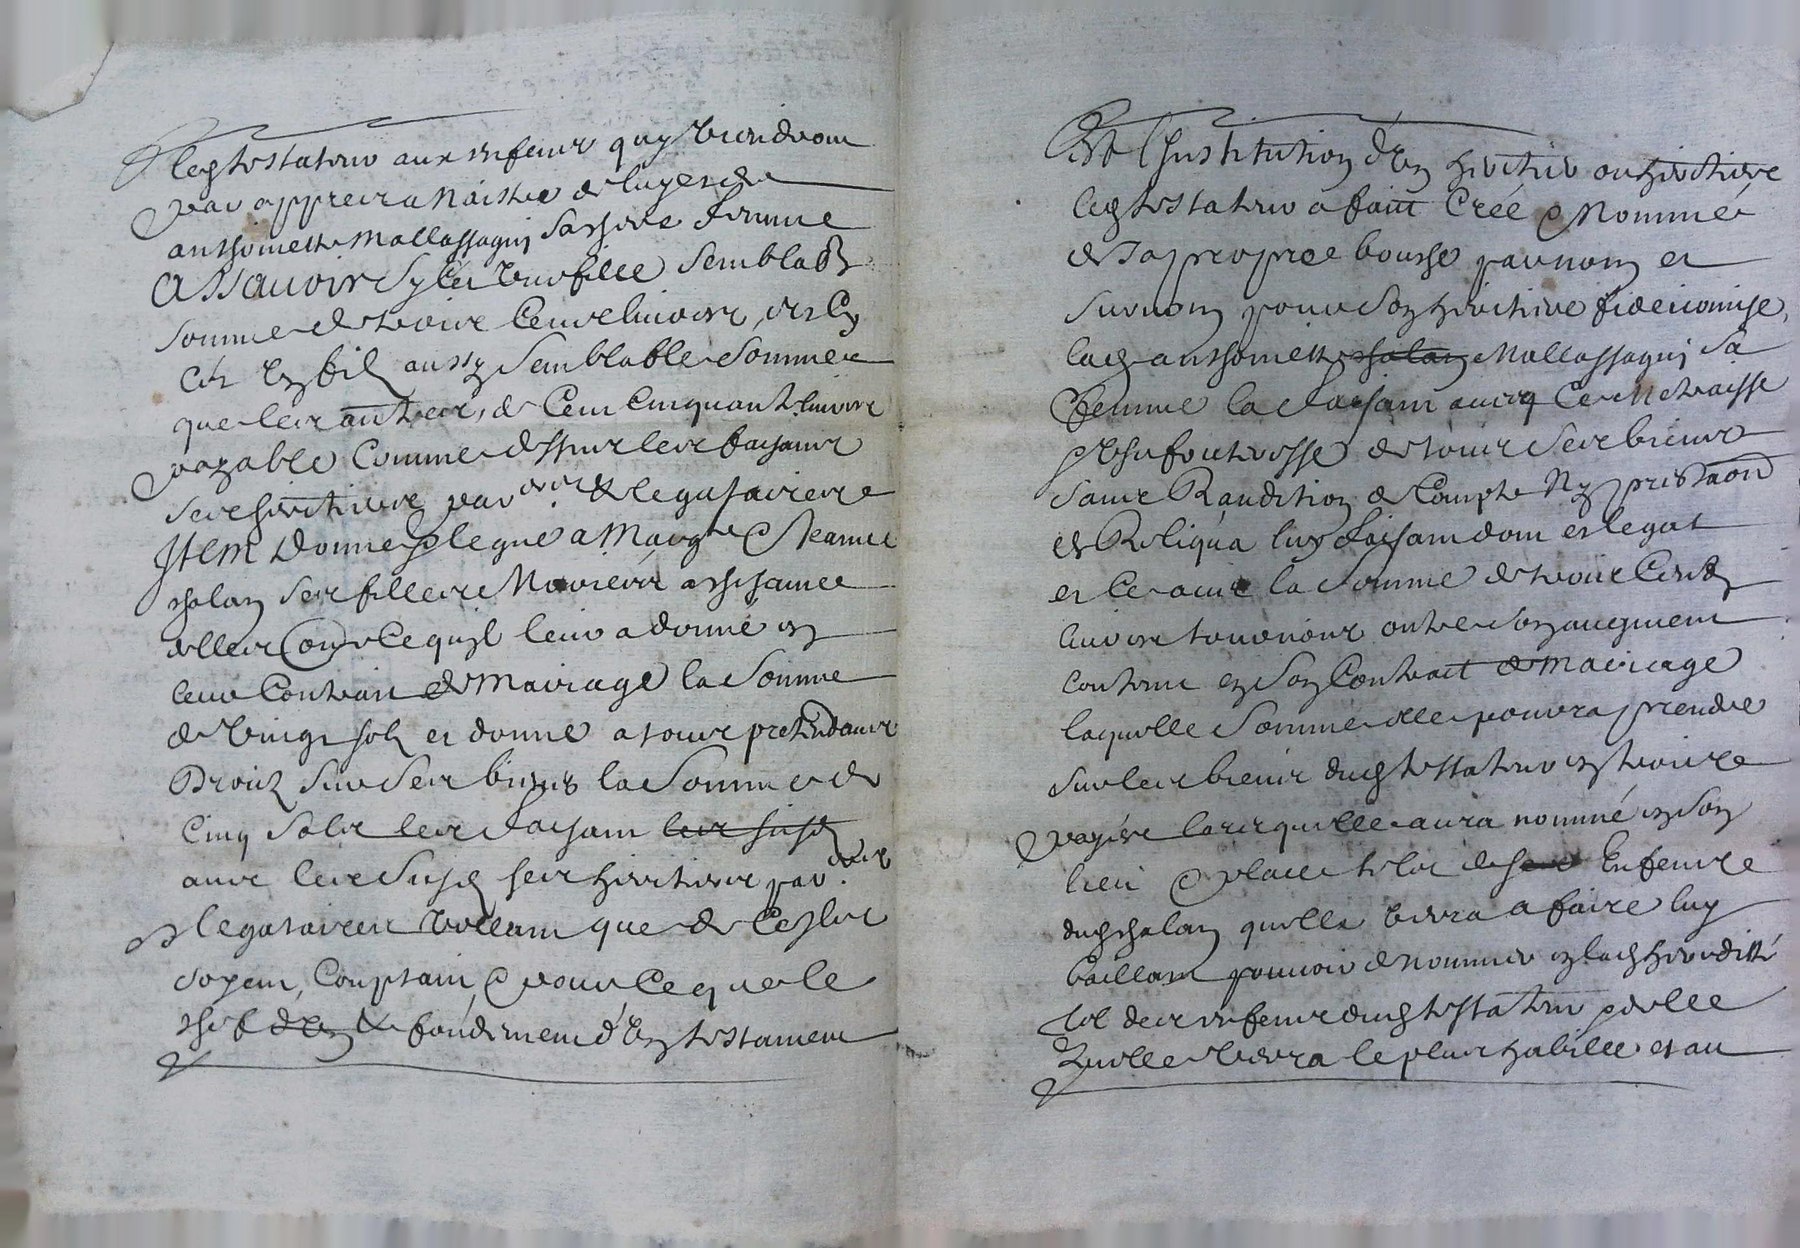 led testateur aux enfans quy viendront
par appres a Naistre de luy et de
anthoinette Mallassagny sa chere femme
Assavoir sy c'est une fille semblable
somme de trois cens livres, et sy
c'est un fils aussy semblable somme
que les autres, de cent cinquante livres
payable comme dessus les faisant
ses heritiers par et legataires
Item donne & legue a Marg.te & Jeanne
chalan ses filles Mariées a chascune
delles outre ce quil leur a donné en
leur Contrait de Mariage la somme
de vingt solz et donne a tous pretendans
Droitz sur ses biens la somme de
cinq solz les faisant les susd
avec les susd ses heritiers par
& legataires voulant que de ce ilz
soyent Comptans & pour ce que le
chef d'un & fondement d'un testament
est l'Institution d'un heritier ou heritiere
led testateur a fait Creé & Nommé
de sa propre bousche par nom et
surnom pour son heritiere fideicomise,
lad anthoinette chalan Mallassagny sa
femme la faisant avec ce Metraisse
de tous ses biens
sans Randition de Compte Ny prestaon
de Reliqua luy faisant don et legat
et ce avec la somme de trois cens
livres tournois outre son augment
contenu en son Contrait de mariage
laquelle somme elle pourra prendre
sur les biens dud testateur en trois
payes lors quelle aura nommé en son
lieu & place tel des Enfens
dud chalan quelle verra a faire luy
baillant pouvoir de nommer en lad heredité
tel des enfens dud testateur & delle
quelle verra le plus habille et au